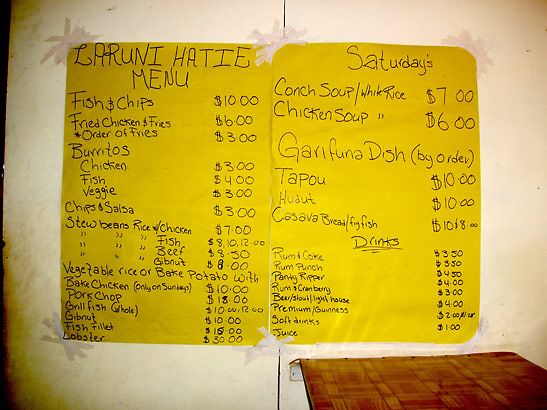 LARUNI HATIE
MENU
Fish & Chips $10.00
Fried Chicken & Fries $6.00
*Order of Fries $3.00
Burritos
Chicken $3.00
Fish $4.00
Veggie $3.00
Chips & Salsa $3.00
Stew beans Rice w/Chicken $7.00
" " " Fish $8,10,12.00
" " " Beef $8.50
" " " Gibnut $8.00
Vegetable rice or Bake Potato with
Bake Chicken (only on Sundays) $10.00
Pork Chop $18.00
Grill fish (whole) $10.00,12.00
Gibnut $10.00
Fish fillet $15.00
Lobster $30.00
Saturday's
Conch Soup/White Rice $7.00
Chicken Soup " $6.00
Garifuna Dish (by order)
Tapou $10.00
Hudut $10.00
Casava Bread/fry fish $10/8.00
Drinks
Rum & Coke $3.50
Rum Punch $3.50
Panty Ripper $4.50
Rum & Cranberry $4.00
Beer/Stout/light house $3.00
Premium/Guinness $4.00
Soft drinks $2.00
Juice $1.00